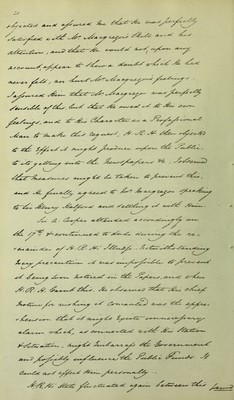 objected and assured me that He was perfectly
satisfied with Mr. Macgregor's Skill and his
attention, and that He would not, upon any
account, appear to shew a doubt which He had
never felt, or hurt Mr. Macgregor's feelings.
I assured Him that Mr. Macgregor was perfectly
sensible of this but that He owed it to His own
feelings, and to His Character as a Professional
Man to make this request. H.R.H. then objected
to the Effect it might produce upon the Public
to its getting into the Newspapers &c. I observed
that measures might be taken to prevent this,
and He finally agreed to let Macgregor speaking
to Sir Henry Halford and settling it with Him.
Sir A. Cooper attended accordingly on
the 17th & continued to do so during the re-
mainder of H.R.H.'s Illness. Notwithstanding
every precaution it was impossible to prevent
it being soon noticed in the Papers, and when
H.R.H. learnt this, He observed that His chief
motive for wishing it concealed was the appre-
hension that it might excite unnecessary
alarm which, as connected with His Station
& Situation, might embarrass the Government
and possibly influence the Public Funds. It
could not affect Him personally.
H.R.H.'s State fluctuated again between this